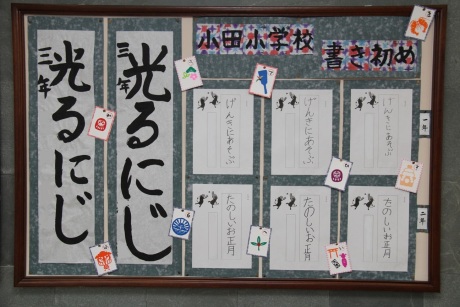 小田小学校
書き初め
三年
光るにじ
三年
光るにじ
一年
げんきにあそぶ
げんきにあそぶ
げんきにあそぶ
二年
たのしいお正月
たのしいお正月
たのしいお正月